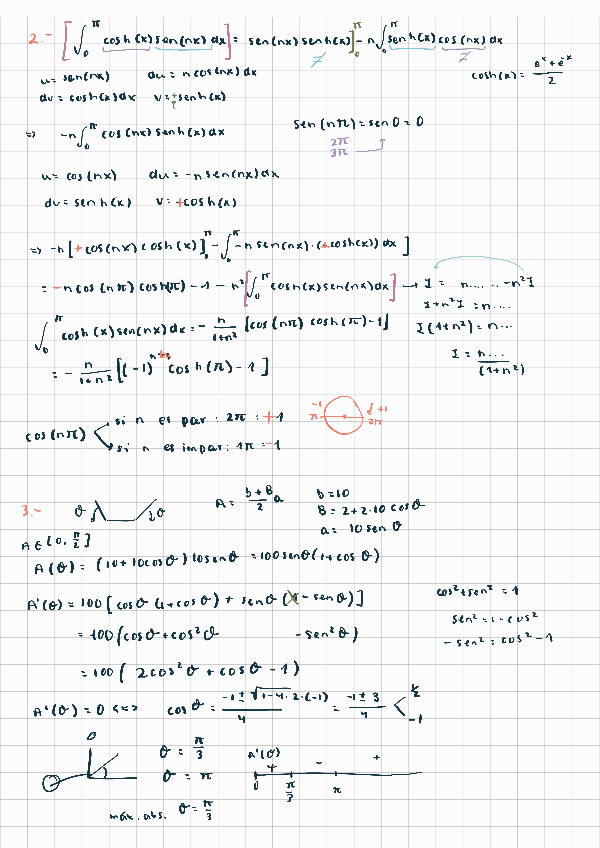 2.- [∫₀^π cosh(x) sen(nx) dx] = sen(nx) senh(x)]₀^π - n∫₀^π senh(x) cos(nx) dx
u = sen(nx) du = n cos(nx) dx
cosh(x) = (e^x + e^-x)/2
dv = cosh(x) dx v = + senh(x)
=> -n∫₀^π cos(nx) senh(x) dx sen(nπ) = sen 0 = 0
2π
3π
u = cos(nx) du = -n sen(nx) dx
dv = senh(x) v = +cosh(x)
=> -n [+cos(nx) cosh(x)]₀^π - ∫₀^π -n sen(nx)·(+cosh(x)) dx]
= -n cos(nπ) cosh(π) - 1 - n² [∫₀^π cosh(x) sen(nx) dx] → I = n.... .. -n²I
I + n²I = n....
∫₀^π cosh(x) sen(nx) dx = - n/(1+n²) [cos(nπ) cosh(π) - 1] I(1+n²) = n...
= - n/(1+n²) [(-1)^n cosh(π) - 1] I = n.../(1+n²)
cos(nπ) si n es par: 2π: +1
si n es impar: 1π = -1
-1 π +1 2π
3.- θ θ A = (b+B)/2 a b = 10
B = 2+2·10 cos θ
a = 10 sen θ
A ∈ [0, π/2]
A(θ) = (10 + 10cos θ) 10sen θ = 100sen θ(1 + cos θ)
A'(θ) = 100 [cos θ (1+cos θ) + sen θ ( - sen θ)] cos² + sen² = 1
= 100 (cos θ + cos² θ - sen² θ) sen² = 1 - cos²
- sen² = cos² - 1
= 100 ( 2cos² θ + cos θ - 1)
A'(θ) = 0 <=> cos θ = (-1 ± √(1-4·2·(-1)))/4 = (-1 ± 3)/4 < 1/2
-1
θ = π/3 A'(θ) + - +
θ = π 0 π/3 π
máx. abs. θ = π/3